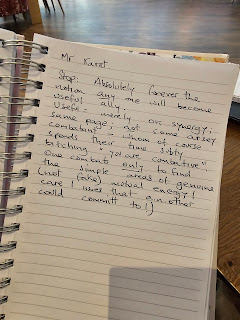 Mr Kurt.
Stop. Absolutely forever the
notion any me will become
useful ally.
Useful - merely on synergy,
same page, not some causey
combatant whom of course
spends their time subtly
bitching "you are combative",
One combats only to find
the simple areas of genuine
(not fake) mutual energy!
care I wish that another
could commit to!)